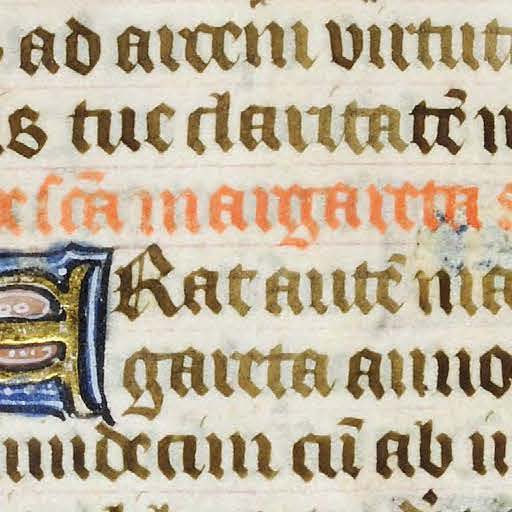 ad arcem virtut
is tue claritatē
e scā margareta
Rat autē ma
gareta anno
undecim cū ab